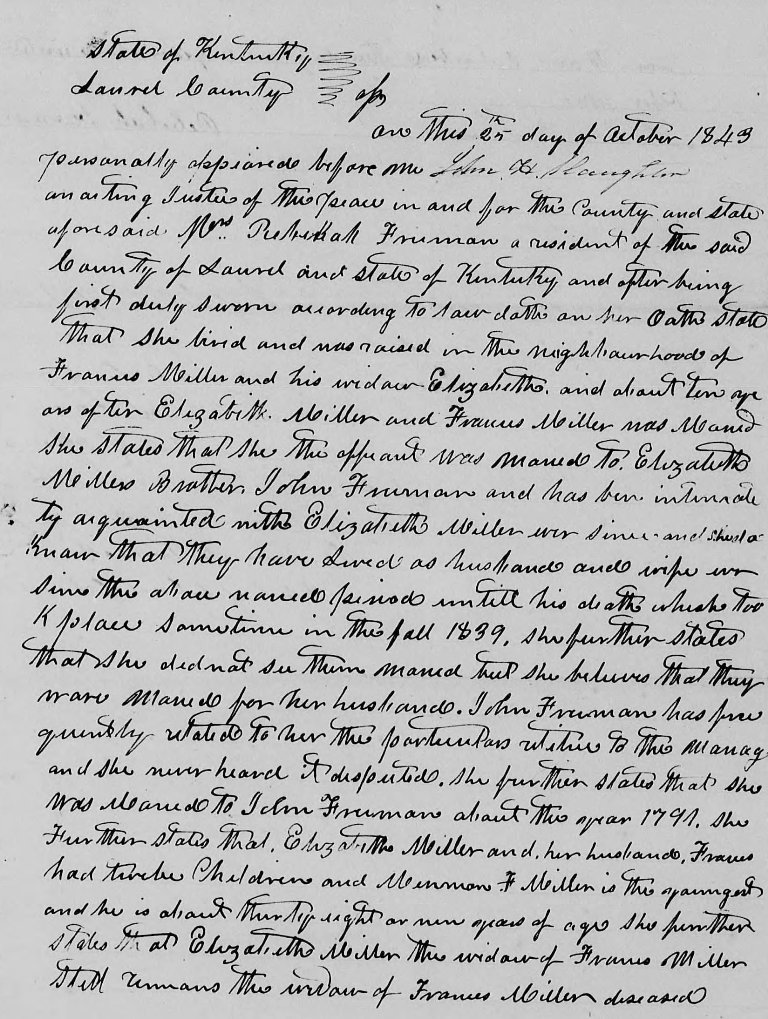 State of Kentucky
Laurel County } ss
on this 25th day of October 1843
personally appeared before me John H. Slaughter
an acting Justice of the peace in and for the County and state
aforesaid Mrs. Rebekah Freeman a resident of the said
County of Laurel and state of Kentucky and after being
first duly sworn according to law doth on her Oath State
that she livid and was raised in the neighbourhood of
Francis Miller and his widow Elizabeth. and about ten ye
ars after Elizabeth. Miller and Francis Miller was Maried
She states that she the affiant was maried to. Elizabeth
Millers Brother. John Freeman and has ben intimate
ly acquainted with Elizabeth Miller ever since and she do
Know that they have Lived as husband and wife ever
since the above named period untill his death which too
K place sometime in the fall 1839. she further states
that she did not see them maried but she believes that they
ware maried for her husband. John Freeman has fre
quently related to her the particulars relitive to the Mariag
and she never heard it disputed. she further states that she
was Maried to John Freeman about the year 1791. she
Further states that. Elizabeth Miller and. her husband. Francis
had twelve Children and F Miller is the youngest
and he is about thirty eight or nine years of age she further
states that Elizabeth Miller the widow of Francis Miller
Still remains the widow of Francis Miller diseased